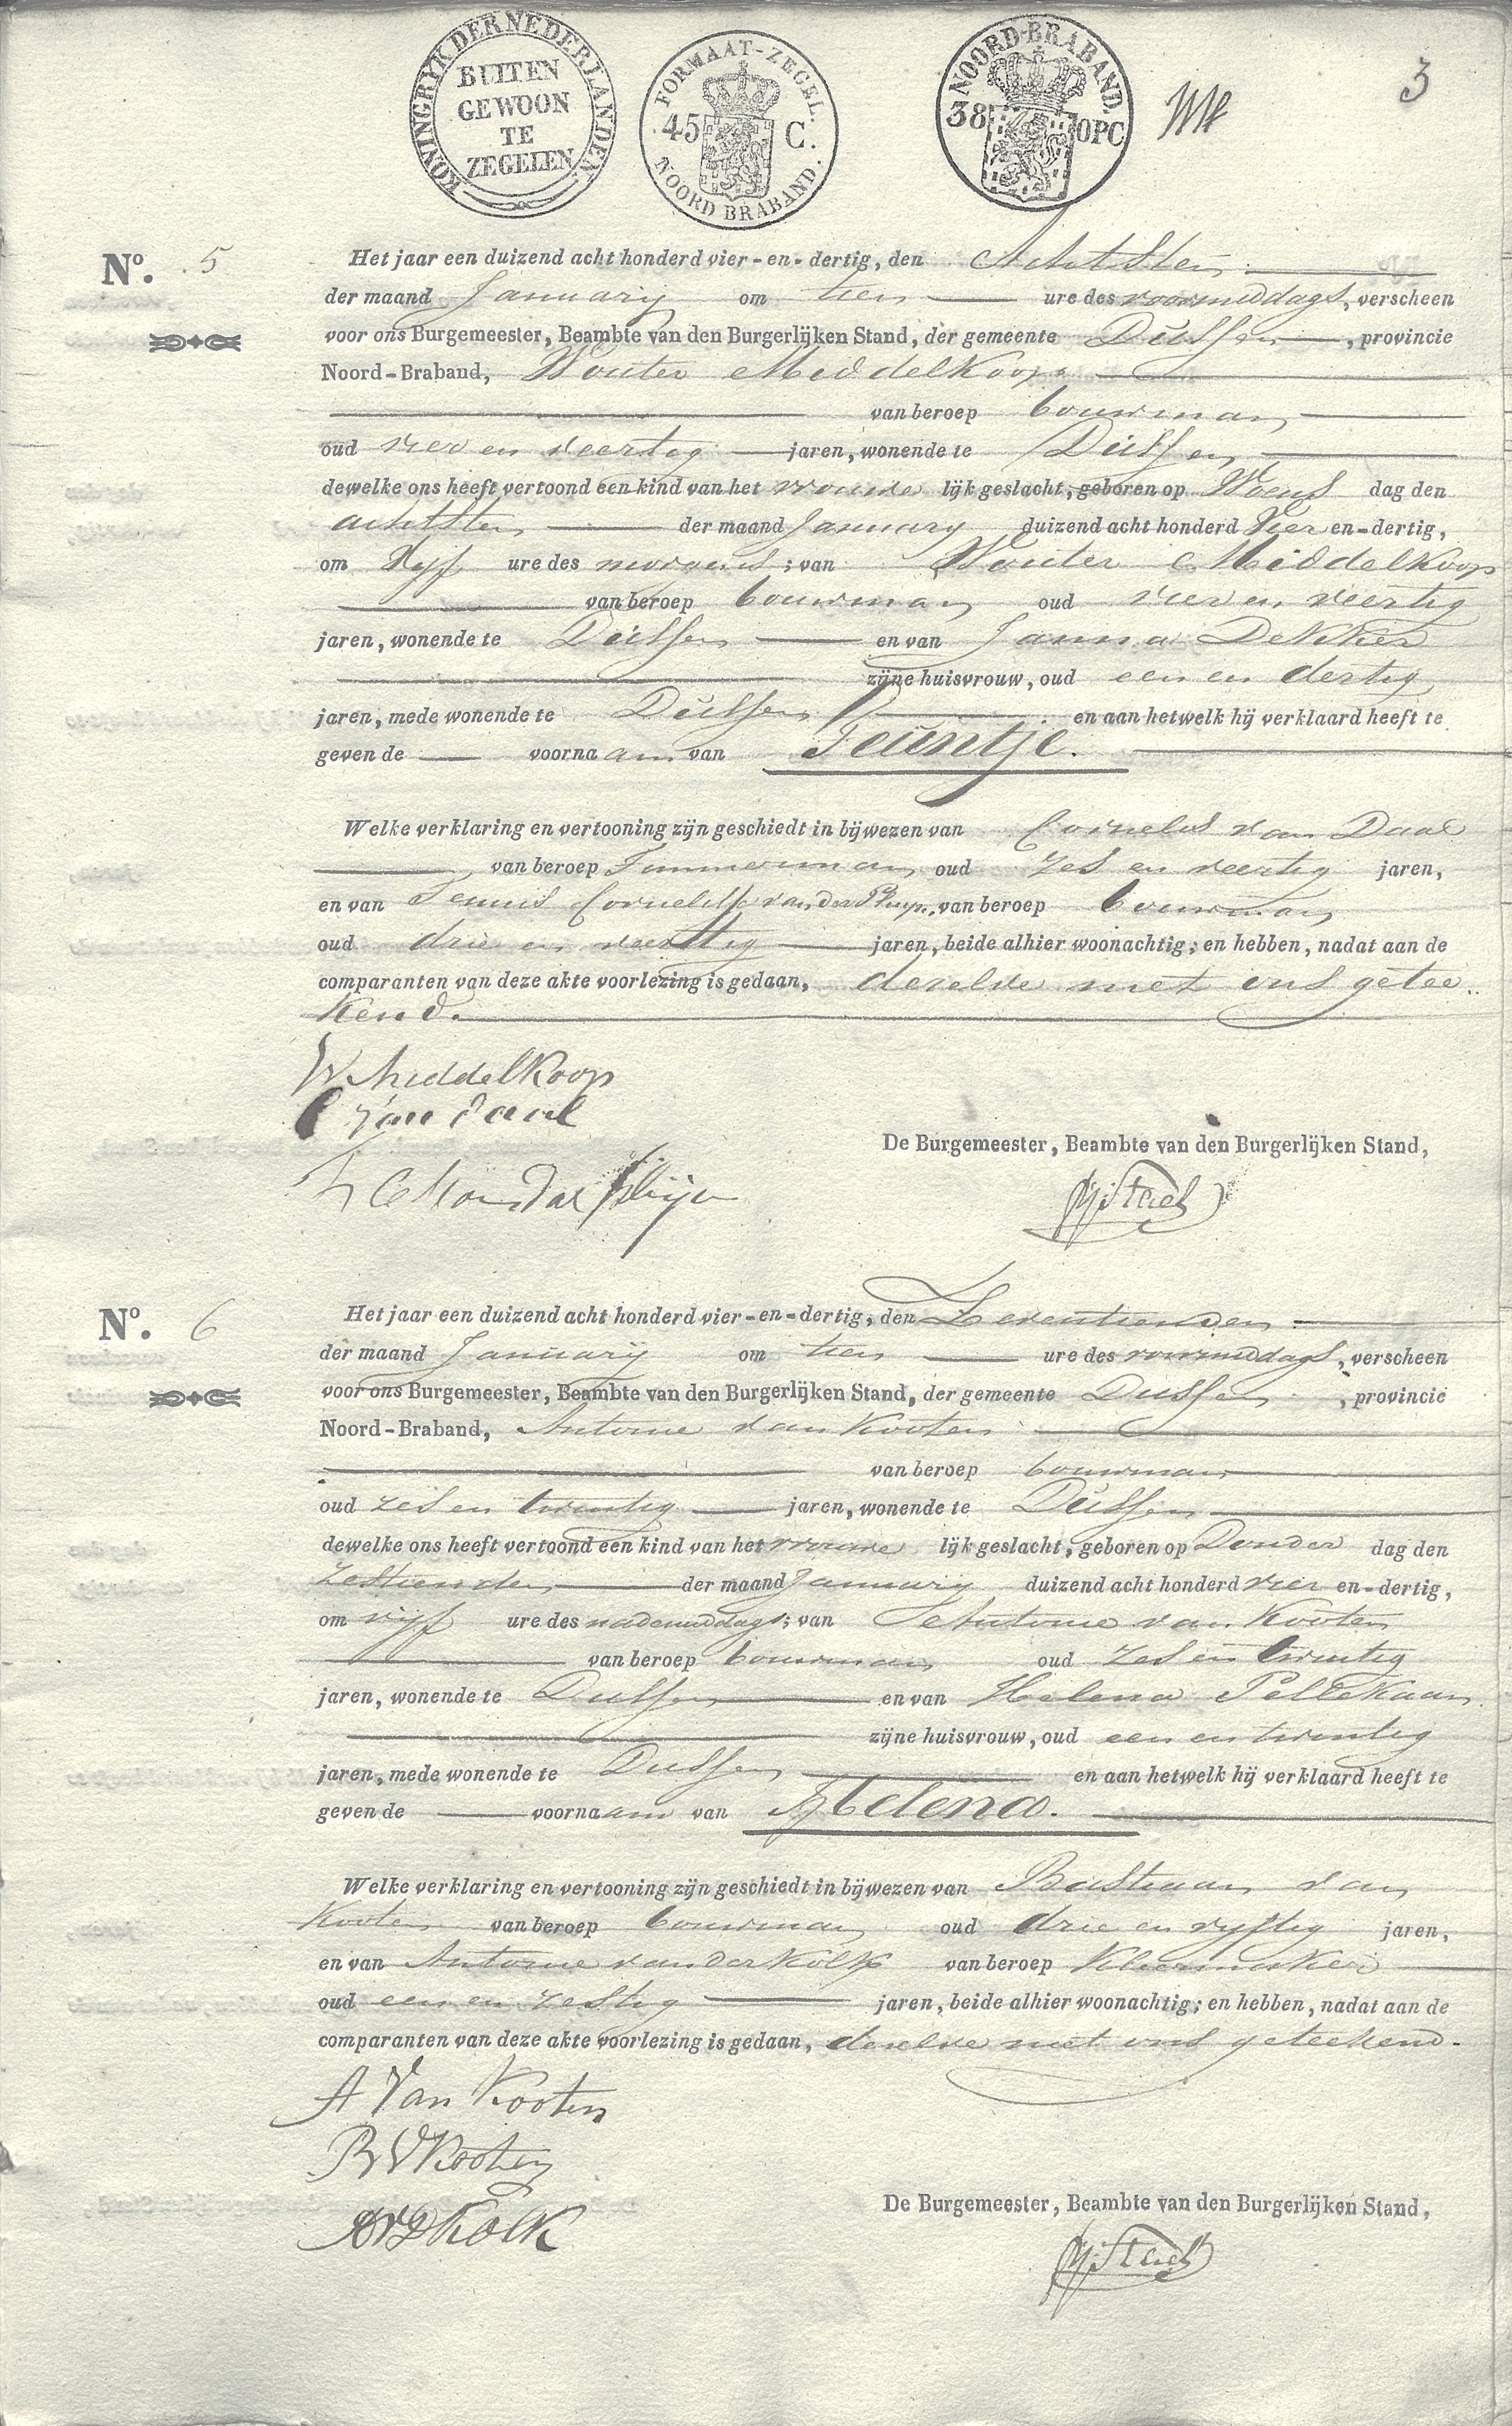 KONINGRYK DER NEDERLANDEN
BUITEN
GEWOON
TE
ZEGELEN
FORMAAT-ZEGEL.
45 C.
NOORD BRABAND.
NOORD-BRABAND
38 OPC
3
No. 5
Het jaar een duizend acht honderd vier-en-dertig, den Achtsten
der maand January om tien ure des voormiddags, verscheen
voor ons Burgemeester, Beambte van den Burgerlijken Stand, der gemeente Dussen, provincie
Noord-Braband, Wouter Middelkoop
van beroep bouwman
oud vier en veertig jaren, wonende te Dussen
dewelke ons heeft vertoond een kind van het vrouwe lijk geslacht, geboren op Woens dag den
achtsten der maand January duizend acht honderd Vier en-dertig,
om Vyf ure des morgens; van Wouter Middelkoop
van beroep bouwman oud vier en veertig
jaren, wonende te Dussen en van Janna Dekker
zijne huisvrouw, oud een en dertig
jaren, mede wonende te Dussen en aan hetwelk hij verklaard heeft te
geven de voornaam van Teuntje.
Welke verklaring en vertooning zijn geschiedt in bijwezen van Cornelis van Daal
van beroep Timmerman oud zes en veertig jaren,
en van Teunis Cornelisse van der Pluym, van beroep bouwman
oud drie en veertig jaren, beide alhier woonachtig; en hebben, nadat aan de
comparanten van deze akte voorlezing is gedaan, dezelve met ons getee
kend.
W Middelkoop
C van daal
De Burgemeester, Beambte van den Burgerlijken Stand,
No. 6
Het jaar een duizend acht honderd vier-en-dertig, den Zeventienden
der maand January om tien ure des voormiddags, verscheen
voor ons Burgemeester, Beambte van den Burgerlijken Stand, der gemeente Dussen, provincie
Noord-Braband, Antonie van Kooten
van beroep bouwman
oud zes en twintig jaren, wonende te Dussen
dewelke ons heeft vertoond een kind van het vrouwe lijk geslacht, geboren op Donder dag den
Zestienden der maand January duizend acht honderd vier en-dertig,
om vyf ure des nademiddags; van Antonie van Kooten
van beroep bouwman oud zes en twintig
jaren, wonende te Dussen en van Helena Pellekaan
zijne huisvrouw, oud een en twintig
jaren, mede wonende te Dussen en aan hetwelk hij verklaard heeft te
geven de voornaam van Helena.
Welke verklaring en vertooning zijn geschiedt in bijwezen van Bastiaan van
Kooten van beroep bouwman oud drie en vyftig jaren,
en van Antonie van der Kolk van beroep Kleermaker
oud een en zestig jaren, beide alhier woonachtig; en hebben, nadat aan de
comparanten van deze akte voorlezing is gedaan, dezelve met ons geteekend.
A Van Kooten
B V Kooten
AVD Kolk
De Burgemeester, Beambte van den Burgerlijken Stand,